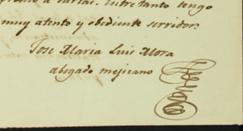 á cartas. Entretanto tengo
muy atento y obediente servidor.
Jose Maria Luis Mora
abogado mejicano